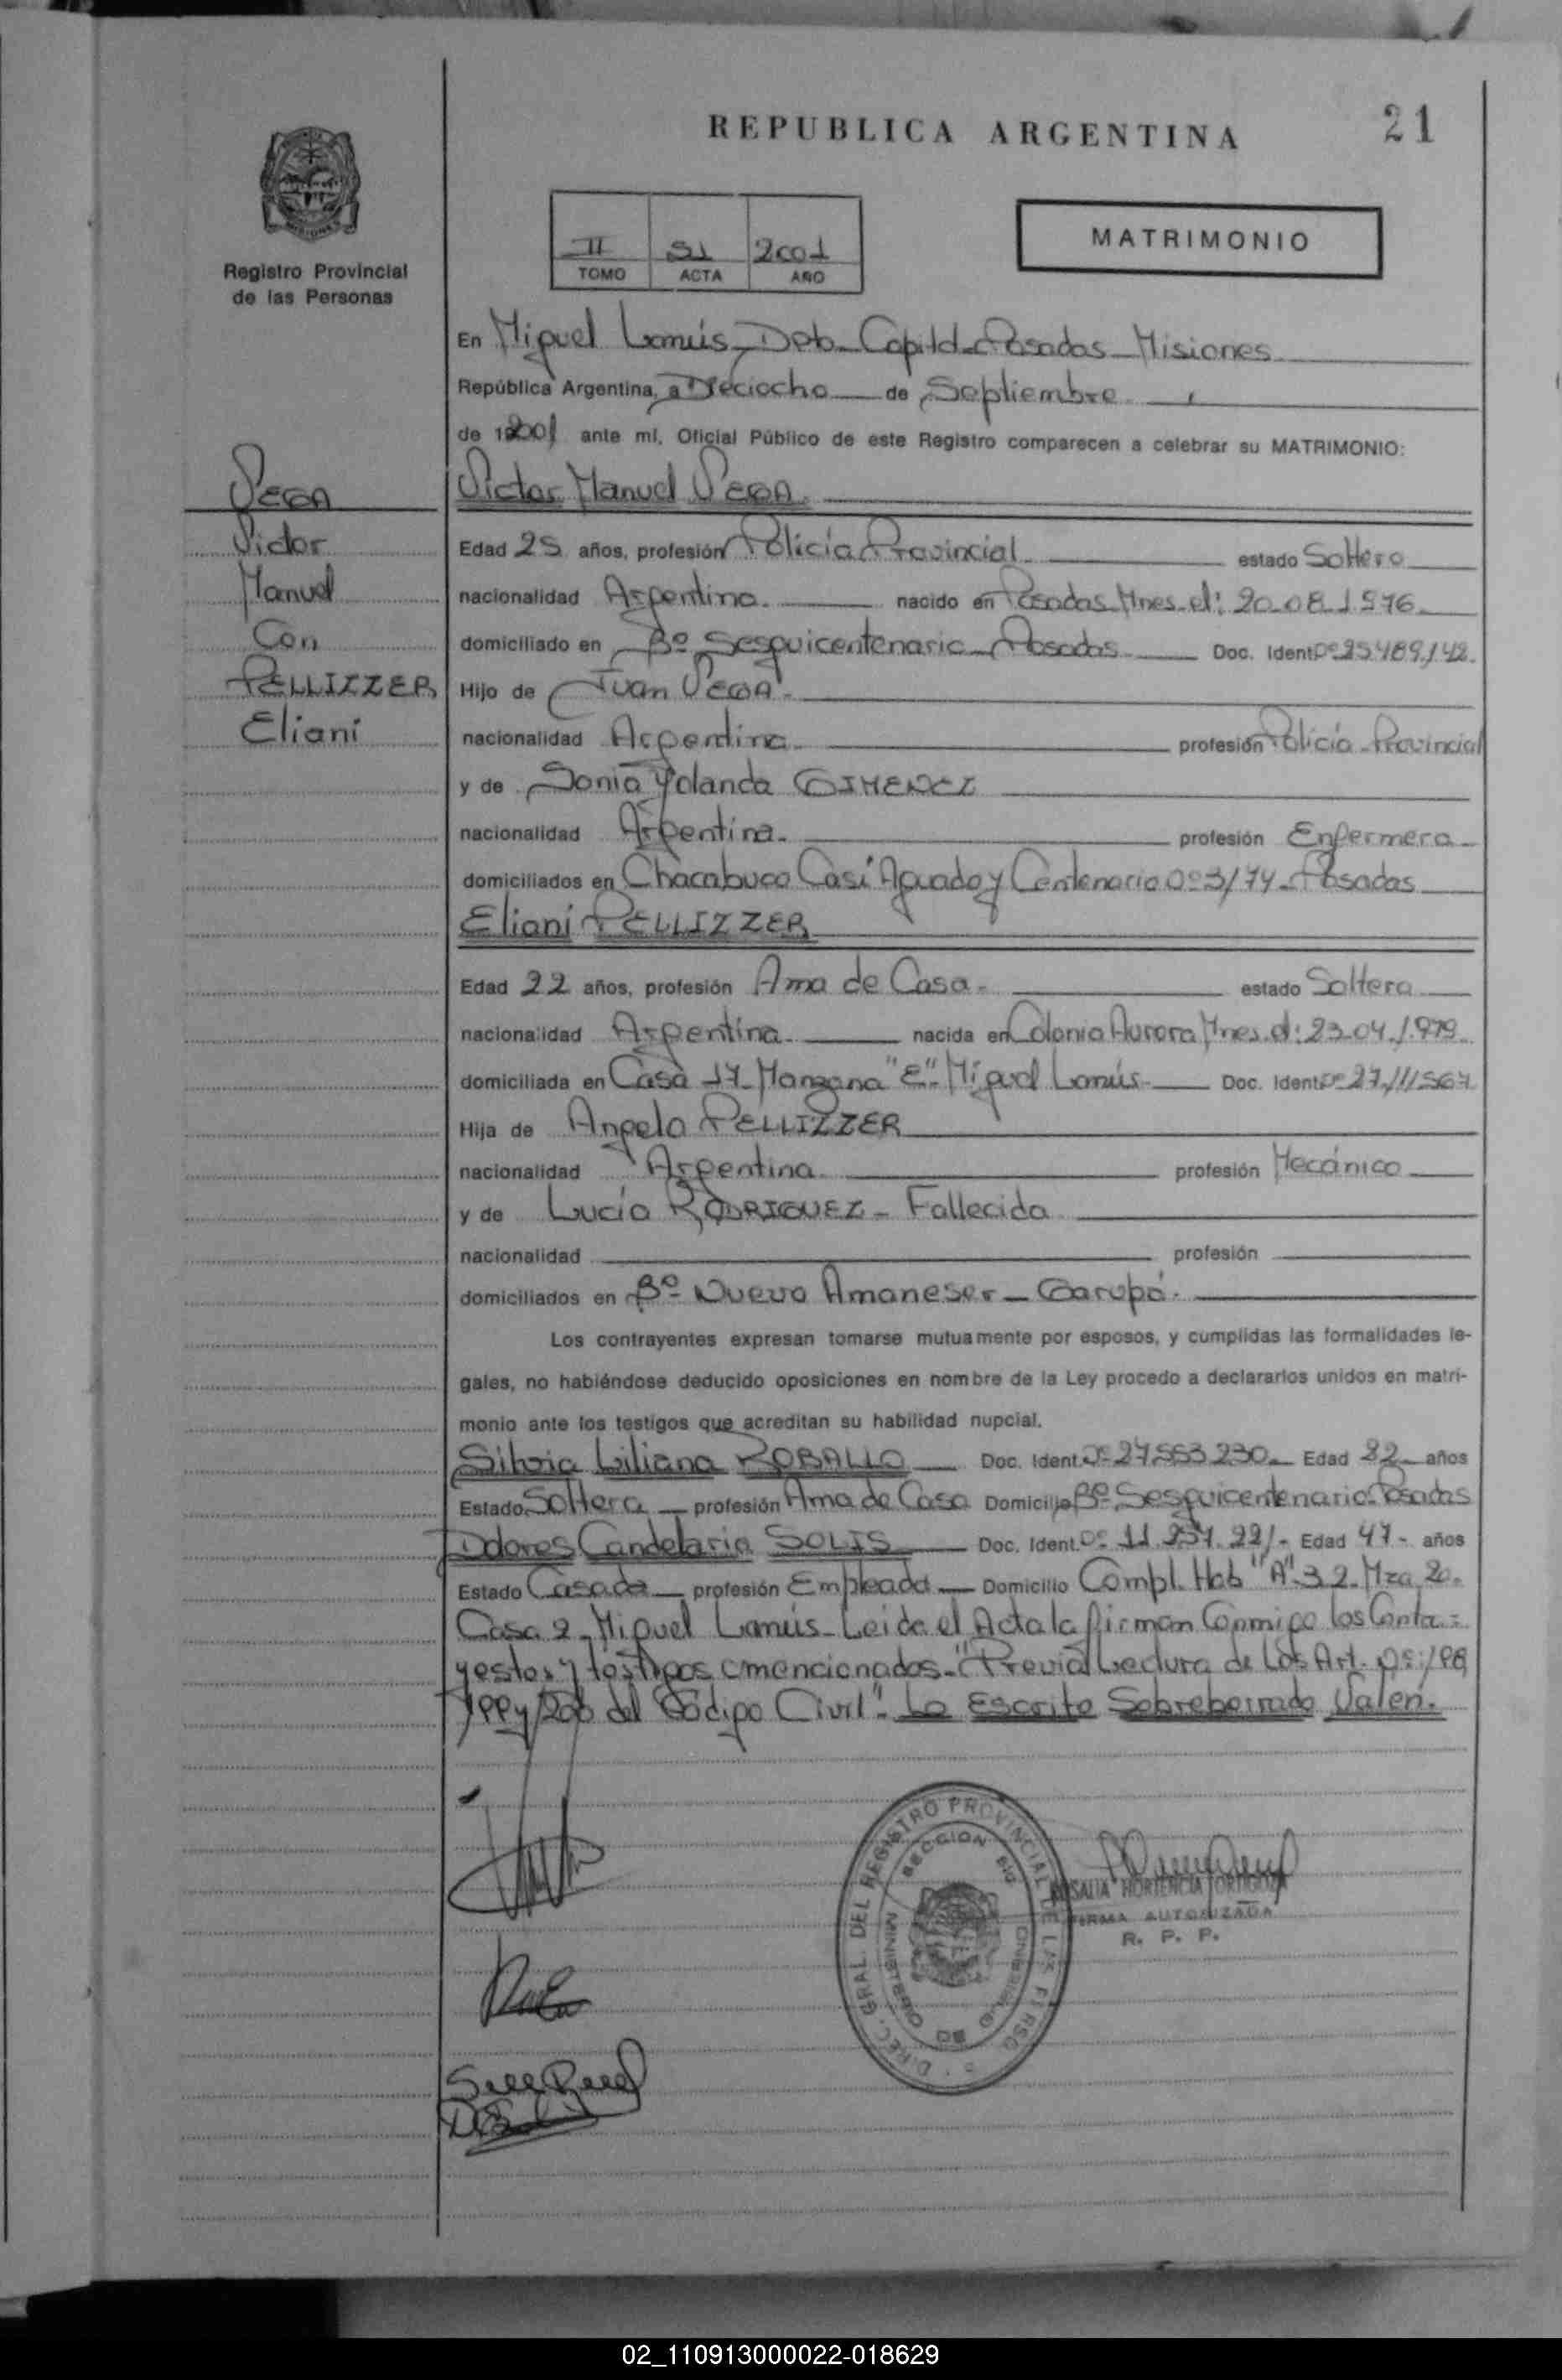 REPUBLICA ARGENTINA
21
II 91 2001
TOMO ACTA AÑO
MATRIMONIO
Registro Provincial
de las Personas
VEGA
Victor
Manuel
Con
PELLIZZER
Eliani
En Miguel Lanús, Dpto. Capital. Posadas. Misiones
República Argentina, a Dieciocho de Septiembre
de 2001 ante mí, Oficial Público de este Registro comparecen a celebrar su MATRIMONIO:
Victor Manuel VEGA.
Edad 25 años, profesión Policía Provincial estado Soltero
nacionalidad Argentina. nacido en Posadas Mnes. el: 20-08-1976
domiciliado en Bº Sesquicentenario Posadas Doc. Ident. nº 25.489.142
Hijo de Juan VEGA.
nacionalidad Argentina profesión Policía Provincial
y de Sonia Yolanda GIMENEZ
nacionalidad Argentina. profesión Enfermera
domiciliados en Chacabuco Casi Aguado y Centenario nº 3174 - Posadas
Eliani PELLIZZER
Edad 22 años, profesión Ama de Casa. estado Soltera
nacionalidad Argentina. nacida en Colonia Aurora Mnes. el: 23-04-1.979
domiciliada en Casa 17. Manzana "E". Miguel Lanús. Doc. Ident. nº 27.111.567
Hija de Angelo PELLIZZER
nacionalidad Argentina profesión Mecánico
y de Lucia RODRIGUEZ - Fallecida
nacionalidad profesión
domiciliados en Bº Nuevo Amaneser - Garupá.
Los contrayentes expresan tomarse mutuamente por esposos, y cumplidas las formalidades le-
gales, no habiéndose deducido oposiciones en nombre de la Ley procedo a declararlos unidos en matri-
monio ante los testigos que acreditan su habilidad nupcial.
Silvia Liliana ROBALLO Doc. Ident. nº 27.553.230 Edad 22 años
Estado Soltera profesión Ama de Casa Domicilio Bº Sesquicentenario. Posadas
Dolores Candelaria SOLIS Doc. Ident. nº 11.257.221. Edad 47 años
Estado Casada profesión Empleada Domicilio Compl. Hab "A". 32. Mza. 20.
Casa 2. Miguel Lanús. Leida el Acta la firman Conmigo los Contra=
yestes y testigos mencionados. "Previa Lectura de Los Art. nº: 198,
199 y 200 del Codigo Civil". Lo Escrito Sobreborrado Valen.
DIREC. GRAL. DEL REGISTRO PROVINCIAL DE LAS PERSO
MINISTERIO DE GOBIERNO
ROSALIA HORTENCIA ORTIGOZA
FIRMA AUTORIZADA
R. P. P.
02_110913000022-018629